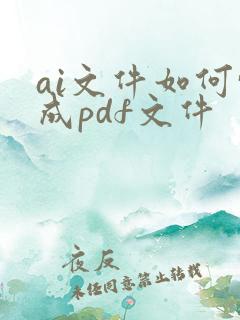 ai文件如何
成pdf文件
夜反
未经同意禁止转载